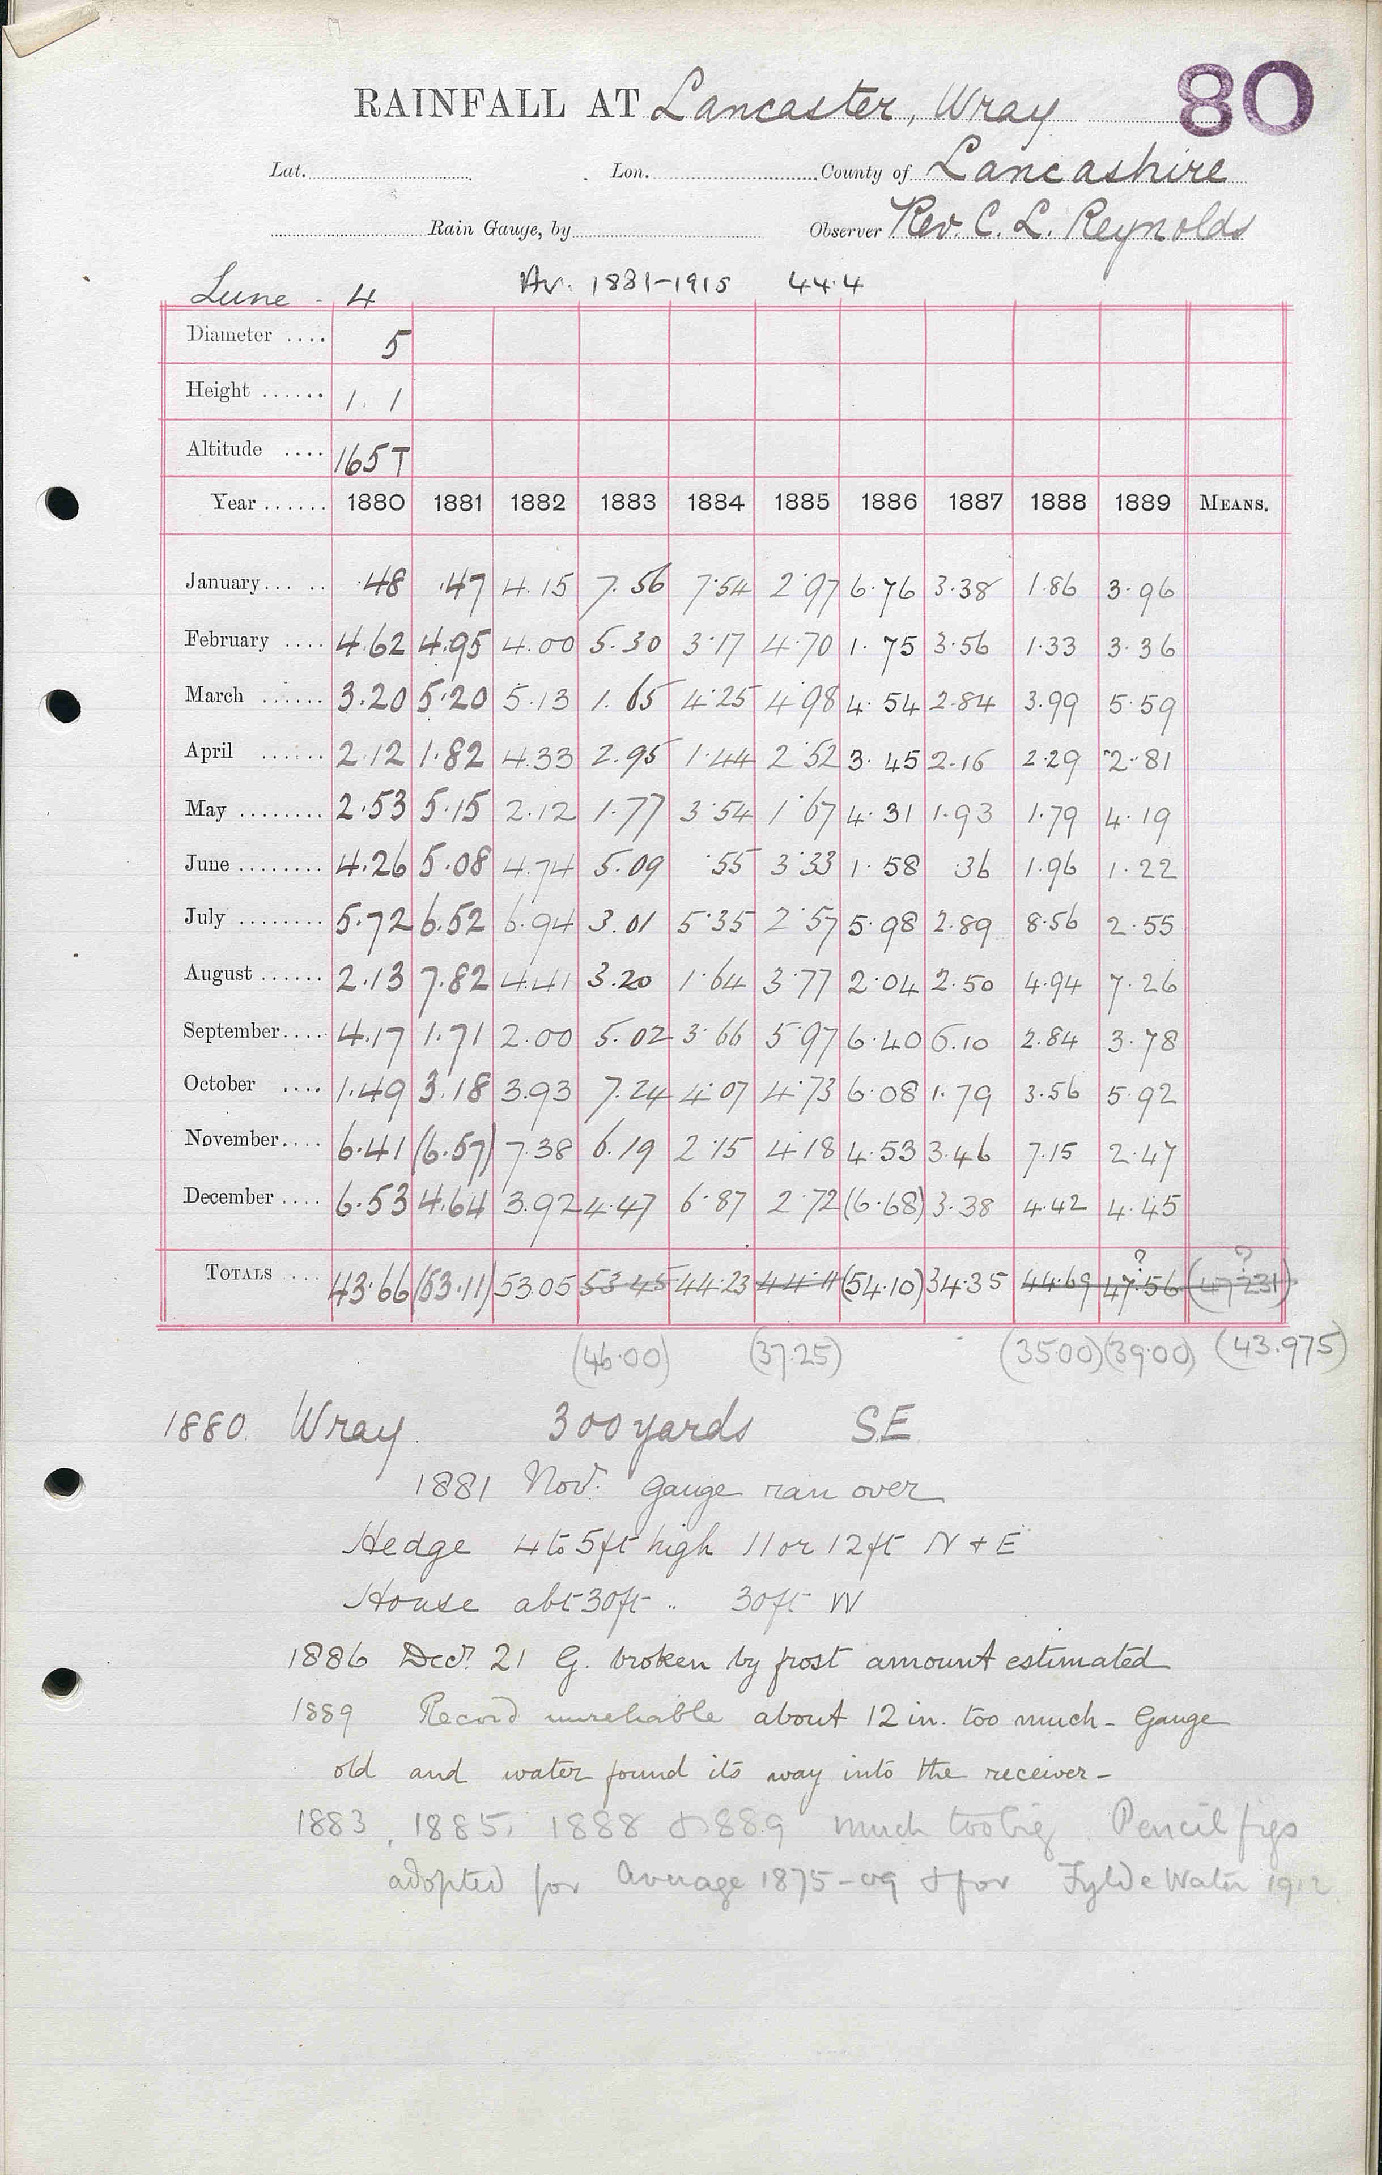 80
RAINFALL AT Lancaster, Wray
Lat. Lon. County of Lancashire
Rain Gauge, by Observer Rev. C. L. Reynolds
Lune - 4 Av. 1881-1915 44.4
Diameter .... 5
Height ...... 1. 1
Altitude .... 165T
Year ...... 1880 1881 1882 1883 1884 1885 1886 1887 1888 1889 MEANS.
January ... .. .48 .47 4.15 7.56 7.54 2.97 6.76 3.38 1.86 3.96
February .... 4.62 4.95 4.00 5.30 3.17 4.70 1.75 3.56 1.33 3.36
March ...... 3.20 5.20 5.13 1.65 4.25 4.98 4.54 2.84 3.99 5.59
April ...... 2.12 1.82 4.33 2.95 1.44 2.52 3.45 2.16 2.29 2.81
May ........ 2.53 5.15 2.12 1.77 3.54 1.67 4.31 1.93 1.79 4.19
June ........ 4.26 5.08 4.74 5.09 .55 3.33 1.58 .36 1.96 1.22
July ........ 5.72 6.52 6.94 3.01 5.35 2.57 5.98 2.89 8.56 2.55
August ...... 2.13 7.82 4.41 3.20 1.64 3.77 2.04 2.50 4.94 7.26
September.... 4.17 1.71 2.00 5.02 3.66 5.97 6.40 6.10 2.84 3.78
October .... 1.49 3.18 3.93 7.24 4.07 4.73 6.08 1.79 3.56 5.92
November.... 6.41 (6.57) 7.38 6.19 2.15 4.18 4.53 3.46 7.15 2.47
December .... 6.53 4.64 3.92 4.47 6.87 2.72 (6.68) 3.38 4.42 4.45
TOTALS .... 43.66 (53.11) 53.05 53.45 44.23 44.11 (54.10) 34.35 44.69 47.56 ? (47.231) ?
(46.00) (37.25) (35.00) (39.00) (43.975)
1880. Wray. 300 yards SE
1881 Nov. Gauge ran over
Hedge 4 to 5ft high 11 or 12ft N + E
House abt 30ft .. 30ft W
1886 Decr. 21 G. broken by frost amount estimated
1889 Record unreliable about 12 in. too much - Gauge
old and water found its way into the receiver -
1883, 1885, 1888 & 1889 much too big. Pencil figs
adopted for Average 1875-09 & for Fylde Water 1912.